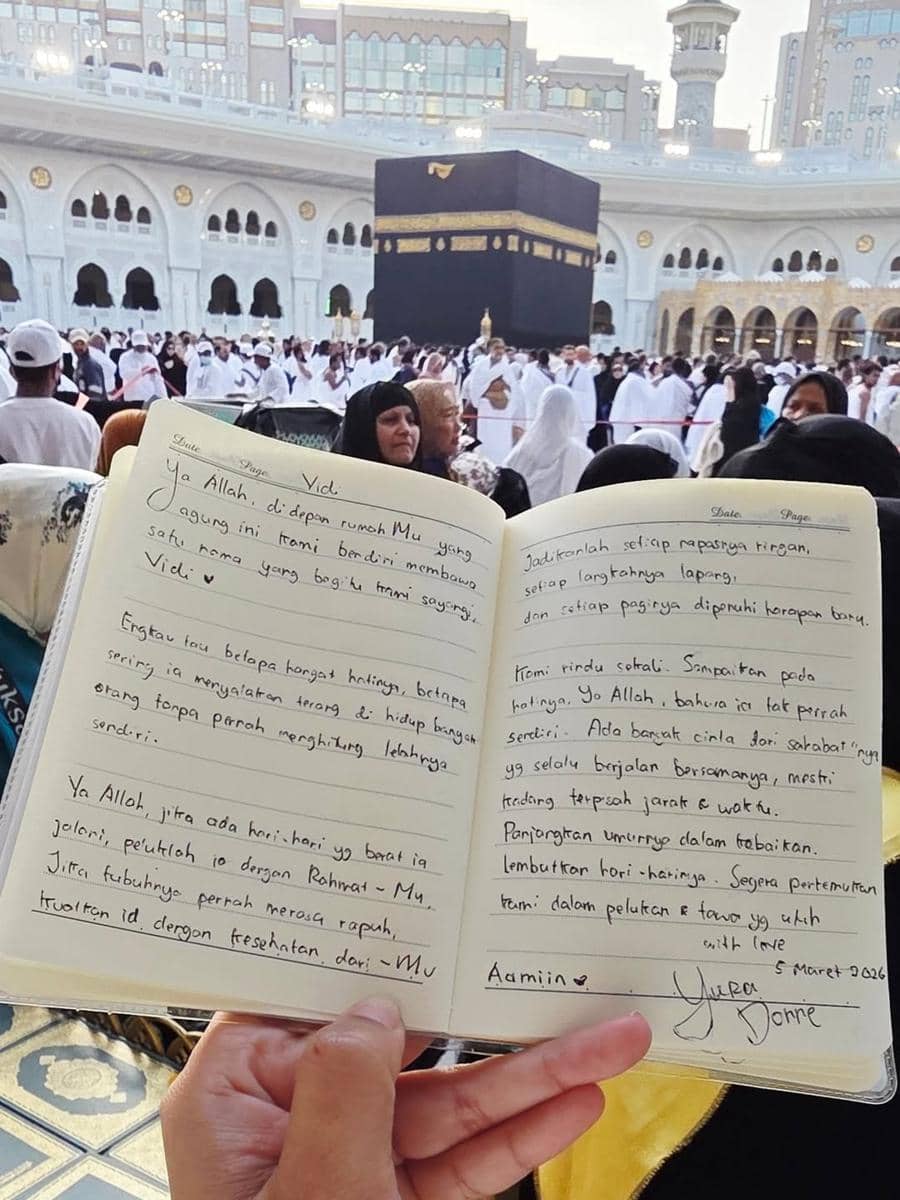 Date Page
Vidi
Ya Allah, didepan rumah Mu yang
agung ini kami berdiri membawa
satu nama yang begitu kami sayangi,
Vidi ♥
Engkau tau betapa hangat hatinya, betapa
sering ia menyalakan terang di hidup banyak
orang tanpa pernah menghitung lelahnya
sendiri.
Ya Allah, jika ada hari-hari yg berat ia
jalani, peluklah ia dengan Rahmat-Mu.
Jika tubuhnya pernah merasa rapuh,
kuatkan ia dengan kesehatan dari-Mu
Date Page
Jadikanlah setiap napasnya ringan,
setiap langkahnya lapang,
dan setiap paginya dipenuhi harapan baru.
Kami rindu sekali. Sampaikan pada
hatinya, Ya Allah, bahwa ia tak pernah
sendiri. Ada banyak cinta dari sahabat"nya
yg selalu berjalan bersamanya, meski
kadang terpisah jarak & waktu.
Panjangkan umurnya dalam kebaikan.
lembutkan hari-harinya. Segera pertemukan
kami dalam pelukan & tawa yg utuh
with love
5 Maret 2026
Aamiin ♥
Yura